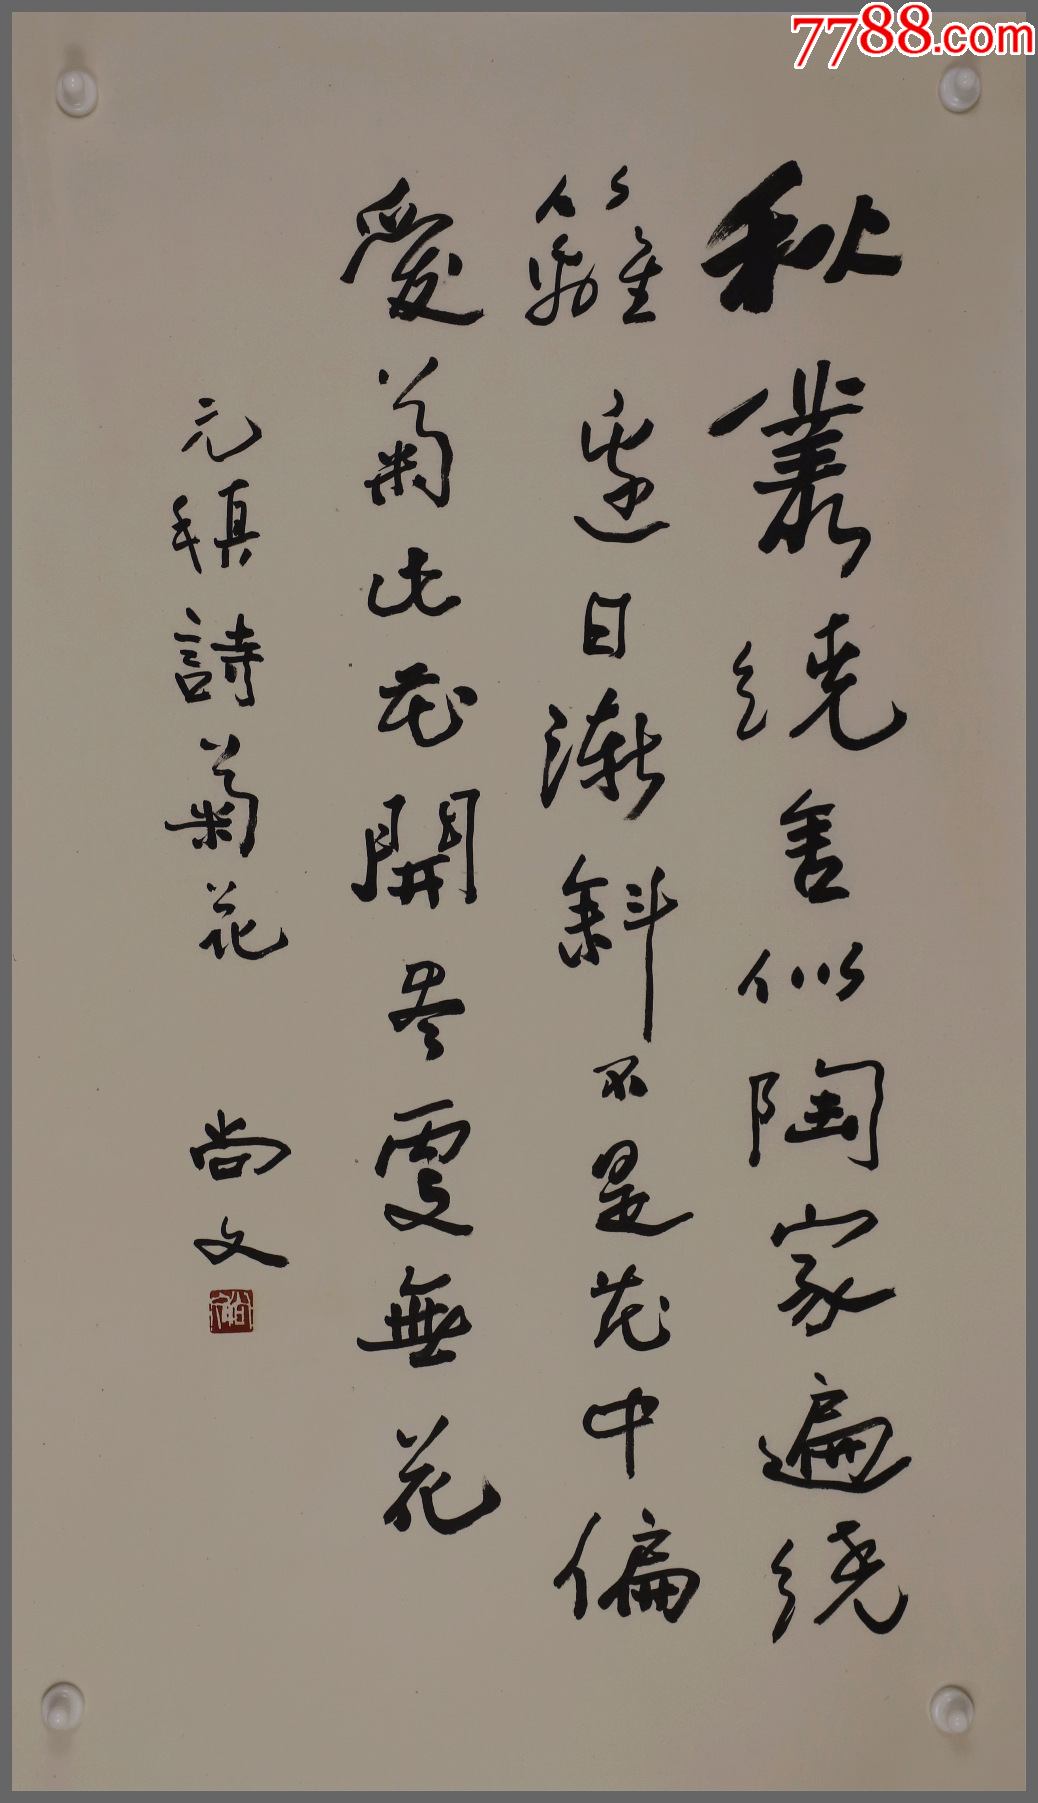 7788.com
秋叢繞舍似陶家遍繞
籬邊日漸斜不是花中偏
愛菊此花開盡更無花
元稹詩菊花 尚文